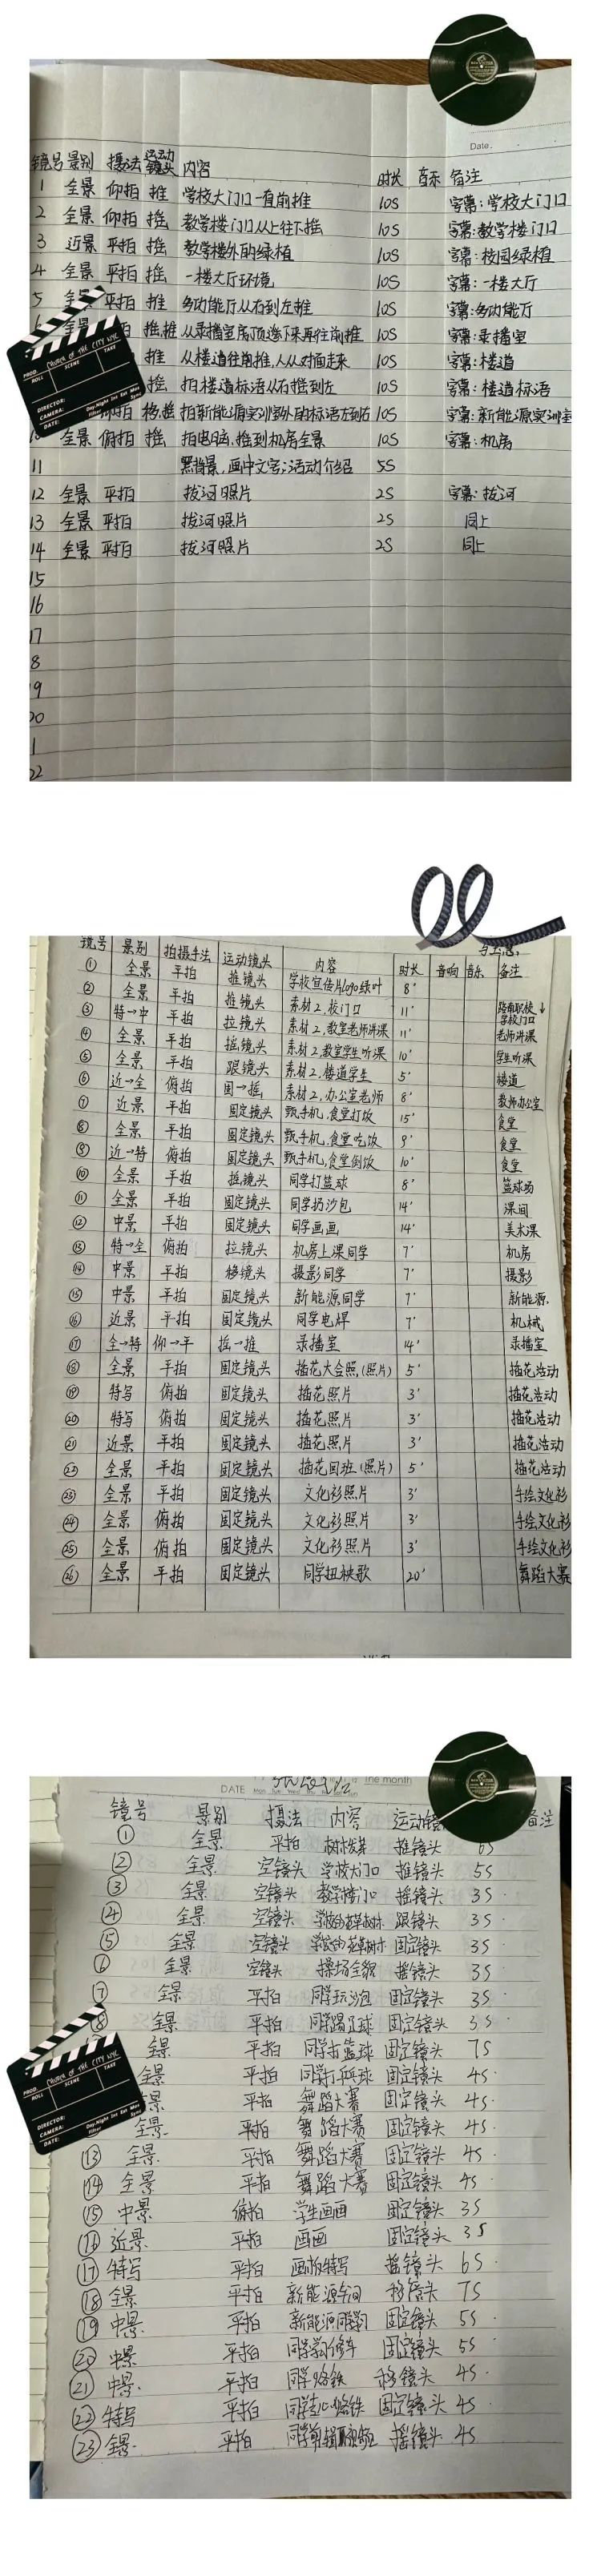 Date.
镜号 景别 摄法 运动镜头 内容 时长 音乐 备注
1 全景 仰拍 推 学校大门口-直前推 10S 字幕:学校大门口
2 全景 仰拍 摇 教学楼门口从上往下摇 10S 字幕:教学楼门口
3 近景 平拍 摇 教学楼外的绿植 10S 字幕:校园绿植
4 全景 平拍 摇 一楼大厅环境 10S 字幕:一楼大厅
5 全景 平拍 推 多功能厅从右到左推 10S 字幕:多功能厅
全景 拍 摇.推 从录播室房顶摇下来再往前推 10S 字幕:录播室
推 从楼道往前推,人从对面走来 10S 字幕:楼道
摇 拍楼道标语从右摇到左 10S 字幕:楼道标语
拍 移.摇 拍新能源实训室外的标语左到右 10S 字幕:新能源实训室
10 全景 俯拍 摇 拍电脑,摇到机房全景 10S 字幕:机房
11 黑背景,画中文字:活动介绍 5S
12 全景 平拍 拔河照片 2S 字幕:拔河
13 全景 平拍 拔河照片 2S 同上
14 全景 平拍 拔河照片 2S 同上
15
16
17
8
9
20
1
22
镜号 景别 拍摄手法 运动镜头 内容 时长 音响 音乐 备注
① 全景 平拍 推镜头 学校宣传片logo绿叶 8'
② 全景 平拍 推镜头 素材2,校门口 11' 学校门口
③ 特→中 平拍 拉镜头 素材2,教室老师讲课 11' 老师讲课
④ 全景 平拍 摇镜头 素材2,教室学生听课 10' 学生听课
⑤ 全景 平拍 跟镜头 素材2,楼道学生 5' 楼道
⑥ 近→全 俯拍 固→摇 素材2,办公室老师 8' 教师办公室
⑦ 近景 平拍 固定镜头 甄手机,食堂打饭 15' 食堂
⑧ 全景 平拍 固定镜头 甄手机,食堂吃饭 9' 食堂
⑨ 近→特 俯拍 固定镜头 甄手机,食堂倒饭 10' 食堂
⑩ 全景 平拍 摇镜头 同学打篮球 8' 篮球场
⑪ 全景 平拍 固定镜头 同学扔沙包 14' 课间
⑫ 中景 平拍 固定镜头 同学画画 14' 美术课
⑬ 特→全 俯拍 拉镜头 机房上课同学 7' 机房
⑭ 中景 平拍 移镜头 摄影同学 7' 摄影
⑮ 中景 平拍 固定镜头 新能源同学 7' 新能源.
⑯ 近景 平拍 固定镜头 同学电焊 7' 机械
⑰ 全→特 仰→平 摇→推 录播室 14' 录播室
⑱ 全景 平拍 固定镜头 插花大合照(照片) 5' 插花活动
⑲ 特写 俯拍 固定镜头 插花照片 3' 插花活动
⑳ 特写 俯拍 固定镜头 插花照片 3' 插花活动
㉑ 近景 平拍 固定镜头 插花照片 3' 插花活动
㉒ 全景 平拍 固定镜头 插花回班(照片) 5' 插花活动
㉓ 全景 平拍 固定镜头 文化衫照片 3' 手绘文化衫
㉔ 全景 俯拍 固定镜头 文化衫照片 3' 手绘文化衫
㉕ 全景 俯拍 固定镜头 文化衫照片 3' 手绘文化衫
㉖ 全景 平拍 固定镜头 同学扭秧歌 20' 舞蹈大赛
DATE the month
镜号 景别 摄法 内容 运动镜 备注
① 全景 平拍 树木发芽 推镜头 6S
② 全景 空镜头 学校大门口 推镜头 5S
③ 全景 空镜头 教学楼门口 摇镜头 3S
④ 全景 空镜头 学校的花草树木 跟镜头 3S
⑤ 全景 空镜头 学校的花草树木 固定镜头 3S
⑥ 全景 空镜头 操场全貌 摇镜头 3S
⑦ 全景 平拍 同学玩沙包 固定镜头 3S
⑧ 全景 平拍 同学踢足球 固定镜头 3S
全景 平拍 同学打篮球 固定镜头 7S
全景 平拍 同学打乒乓球 固定镜头 4S
景 平拍 舞蹈大赛 固定镜头 4S
全景 平拍 舞蹈大赛 固定镜头 4S
⑬ 全景 平拍 舞蹈大赛 固定镜头 4S
⑭ 全景 平拍 舞蹈大赛 固定镜头 4S
⑮ 中景 俯拍 学生画画 固定镜头 3S
⑯ 近景 平拍 画画 固定镜头 3S
⑰ 特写 平拍 画板特写 摇镜头 6S
⑱ 全景 平拍 新能源车间 移镜头 7S
⑲ 中景 平拍 新能源同学 固定镜头 5S
⑳ 中景 平拍 同学学习修车 固定镜头 5S
㉑ 中景 平拍 同学烙铁 移镜头 4S
㉒ 特写 平拍 烙铁 固定镜头 4S
㉓ 全景 平拍 同学剪辑 摇镜头 4S
CHURCH OF THE CITY NYC
PROD.
ROLL SCENE TAKE
DIRECTOR:
CAMERA:
DATE: